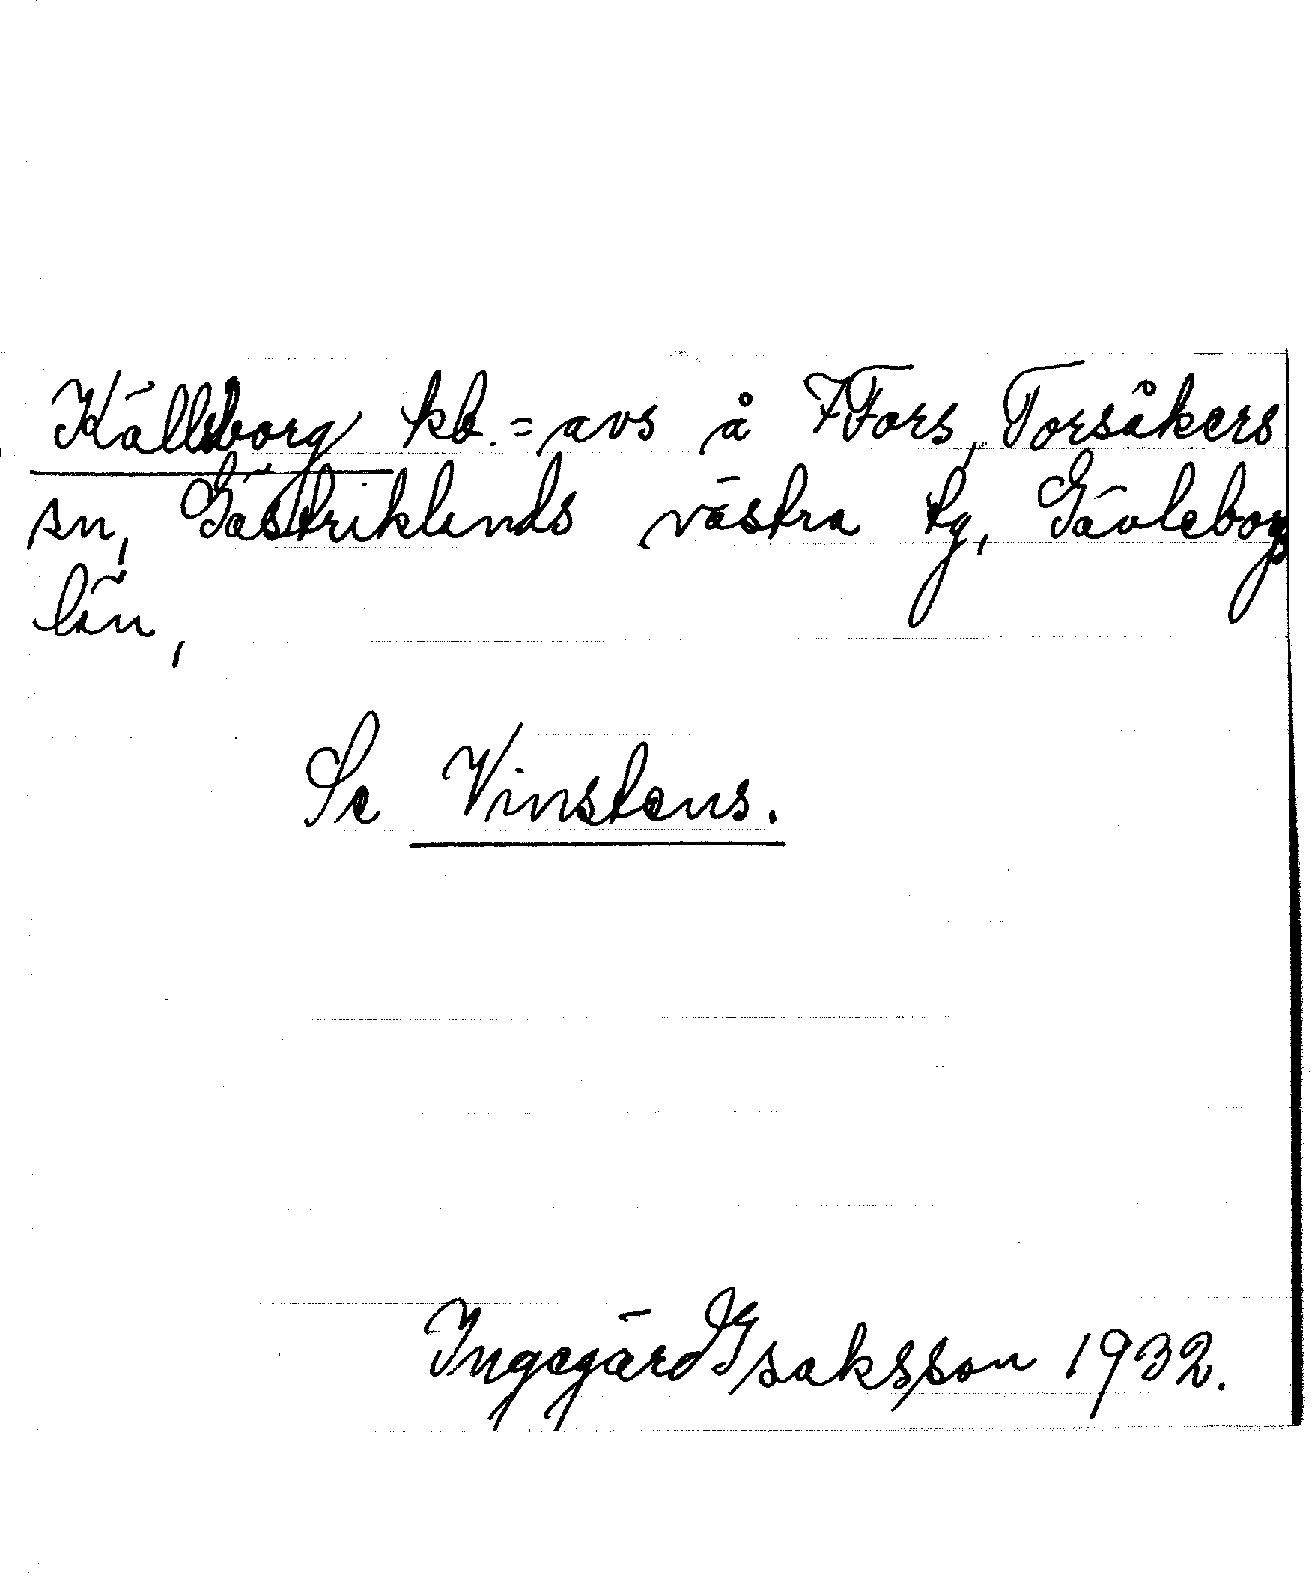 Källsborg kb. = avs å Fors, Torsåkers
sn, Gästriklands västra tg, Gävleborgs
län,
Se Vinstens.
Ingegärd Isaksson 1932.